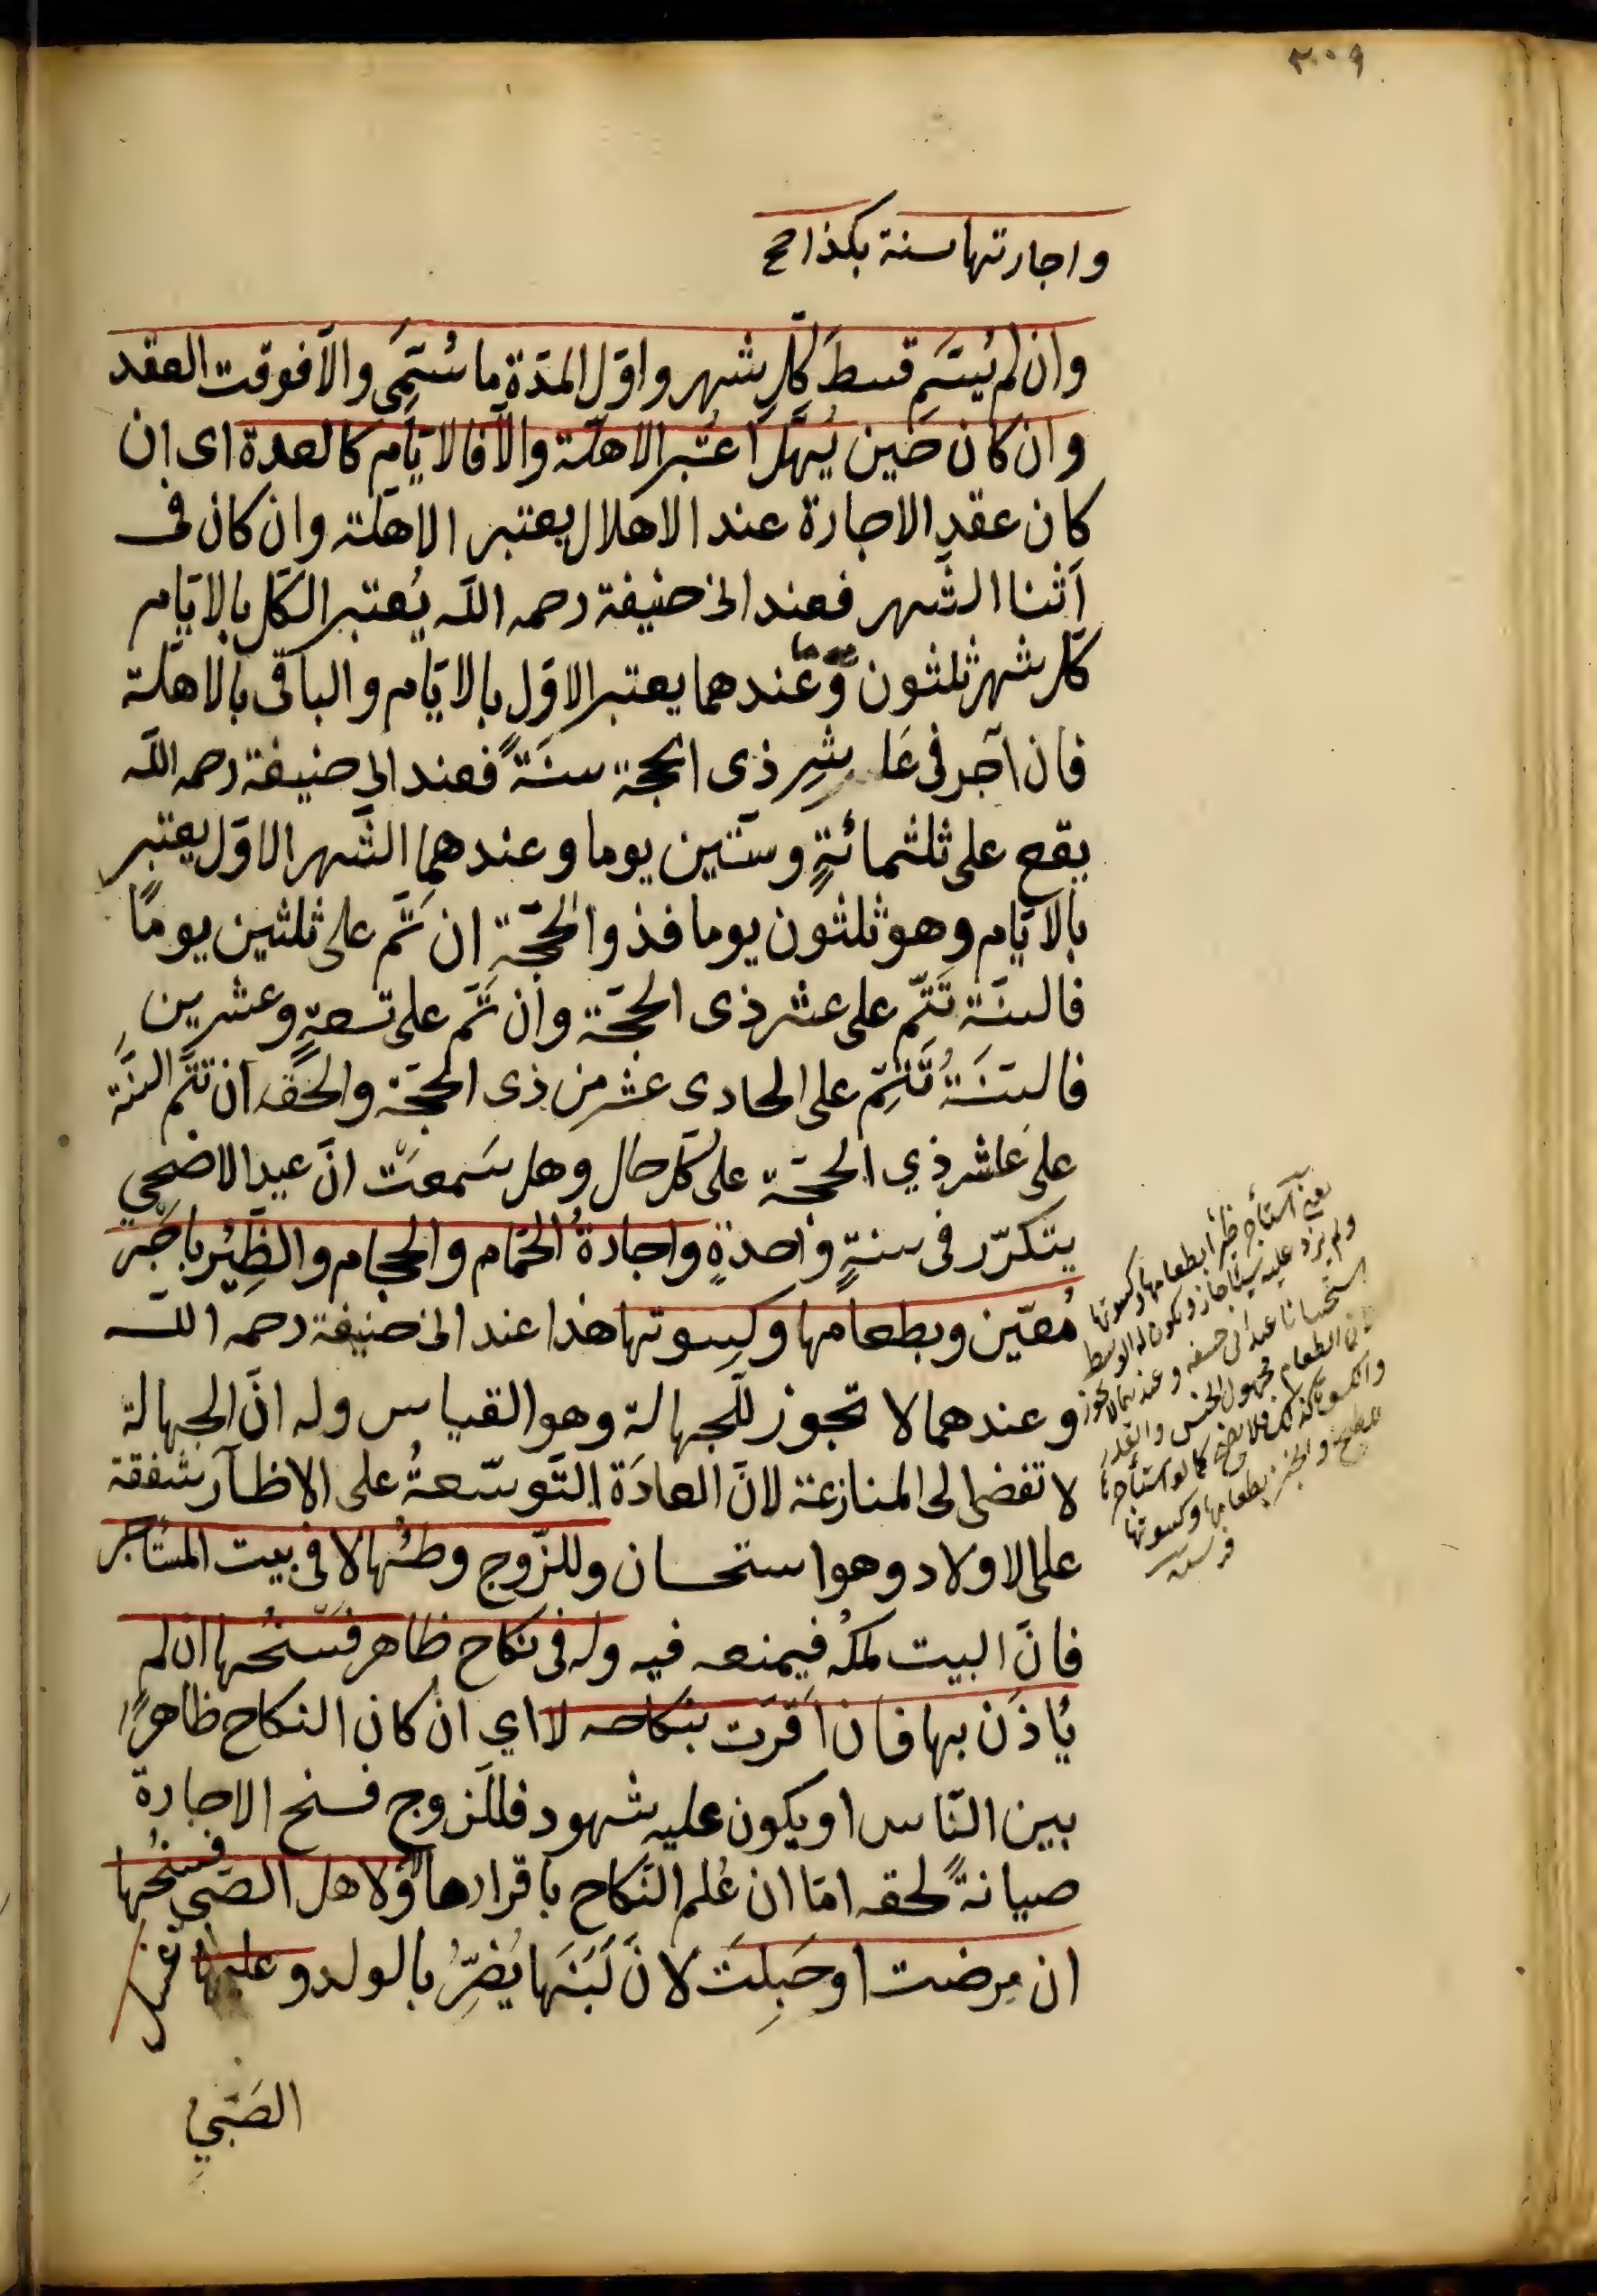 ٣٠٩
واجارتها سنة بكذا صح
وان لم يُسَمِّ قسطَ كلِّ شهر واوّل المدّة ما سُمّي والّا فوقت العقد
وان كان حين يُهَلّ اعتُبر الاهلّة والّا فالايّام كالعدة اى ان
كان عقد الاجارة عند الاهلال يعتبر الاهلّة وان كان فى
اثنا الشّهر فعند ابى حنيفة رحمه اللّه يُعتبر الكلّ بالايّام
كلّ شهر ثلثون وعندهما يعتبر الاوّل بالايّام والباقى بالاهلّة
فان آجر فى عاشرِ ذى الحجة سنَةً فعند ابى حنيفة رحمه اللّه
يقع على ثلثمائةٍ وستّين يوما وعندهما الشّهر الاوّل يعتبر
بالايّام وهو ثلثون يوما فذو الحجّة ان تمّ على ثلثين يومًا
فالسنَة تتمّ على عشر ذى الحجّة وان تمّ على تسعةٍ وعشرين
فالسنَةُ تتمّ على الحادى عشر من ذى الحجّة والحقّ ان تتمّ السنَة
على عاشر ذي الحجّة على كلّ حال وهل سَمعتَ انّ عيد الاضحي
يتكرّر فى سنةٍ واحدةٍ واجارةُ الحمّام والحجام والظِئْر باجرٍ
مُعيّن وبطعامها وكِسوتها هذا عند ابى حنيفة رحمه اللّه
وعندهما لا تجوز للجهالة وهو القياس وله انّ الجهالة
لا تفضى الى المنازعة لانّ العادَة التّوسّعةُ على الاظآر شفقة
على الاولاد وهو استحسان وللزّوج وطئُها لا فى بيت المستأجر
فانّ البيت ملكُه فيمنعه فيه وله فى نكاح ظاهر فسخُها ان لم
يُأذَن بها فان اقرّت بنكاحه لا اي ان كان النكاح ظاهرًا
بين النّاس او يكون عليه شهود فللزوج فسخ الاجارة
صيانةً لحقه امّا ان عُلم النّكاح باقرارها ولاهل الصّبي فسخُها
ان مرضت او حَبِلت لانّ لَبَنَها يُضِرُّ بالولد وعليها غسل
الصَبّيِ
يعنى استأجر ظئرا بطعامها وكسوتها
ولم يزد عليه شيئا جاز ويكون له الوسط
استحسانا عند ابى حنيفه وعندهما لا يجوز
لان الطعام مجهول الجنس والقدر
والكسوة كذلك فلا يصح كما لو استأجرها
للطبخ والخبز بطعامها وكسوتها